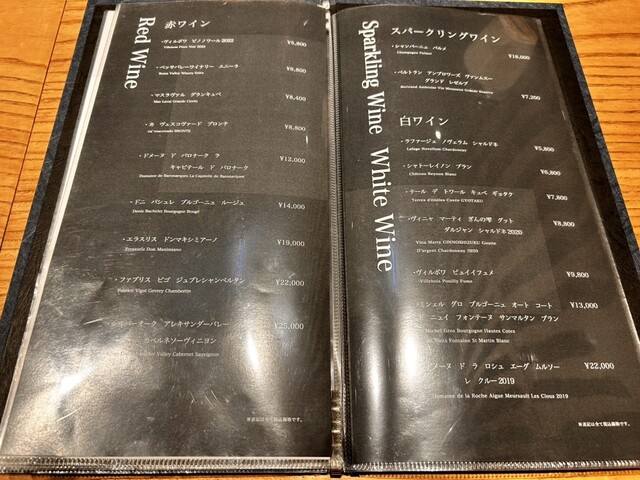 Red Wine
赤ワイン
・ヴィルボワ ピノノワール2022
Villebois Pinot Noir 2022
¥5,800
・ベッサバレーワイナリー エニーラ
Bessa Valley Winery Enira
¥6,800
・マスラヴァル グランキュベ
Mas Laval Grande Cuvée
¥8,400
・カ ヴェスコヴァード ブロンテ
¥8,800
・ドメーヌ ド バロナーク ラ
キャピテール ド バロナーク
Domaine de Baronarques La Capitelle de Baronarques
¥12,000
・ドニ バシュレ ブルゴーニュ ルージュ
Denis Bachelet Bourgogne Rouge
¥14,000
・エラスリス ドンマキシミアーノ
Errazuriz Don Maximiano
¥19,000
・ファブリス ビゴ ジュブレシャンベルタン
Fabrice Vigot Gevrey Chambertin
¥22,000
オーク アレキサンダーバレー
カベルネソーヴィニヨン
Valley Cabernet Sauvignon
¥25,000
※表記は全て税込価格です。
Sparkling Wine
スパークリングワイン
・シャンパーニュ パルメ
Champagne Palmer
¥18,000
・ベルトラン アンブロワーズ ヴァンムスー
グランド レゼルブ
Bertrand Ambroise Vin Mousseux Grande Reserve
¥7,200
White Wine
白ワイン
・ラファージュ ノヴェラム シャルドネ
Lafage Novellum Chardonnay
¥5,800
・シャトーレイノン ブラン
Château Reynon Blanc
¥6,800
・テール デ トワール キュベ ギョタク
Terres d'étoiles Cuvée GYOTAKU
¥7,800
・ヴィニャ マーティ ぎんの雫 グット
ダルジャン シャルドネ2020
Vina Marty GINNOSHIZUKU Goutte
D'argent Chardonnay 2020
¥8,800
・ヴィルボワ ピュイイフュメ
Villebois Pouilly Fume
¥9,800
ミッシェル グロ ブルゴーニュ オート コート
ド ニュイ フォンテーヌ サンマルタン ブラン
Michel Gros Bourgogne Hautes Cotes
Nuits Fontaine St Martin Blanc
¥13,000
メーヌ ド ラ ロシュ エーグ ムルソー
レ クルー2019
Domaine de la Roche Aigue Meursault Les Clous 2019
¥22,000
※表記は全て税込価格です。